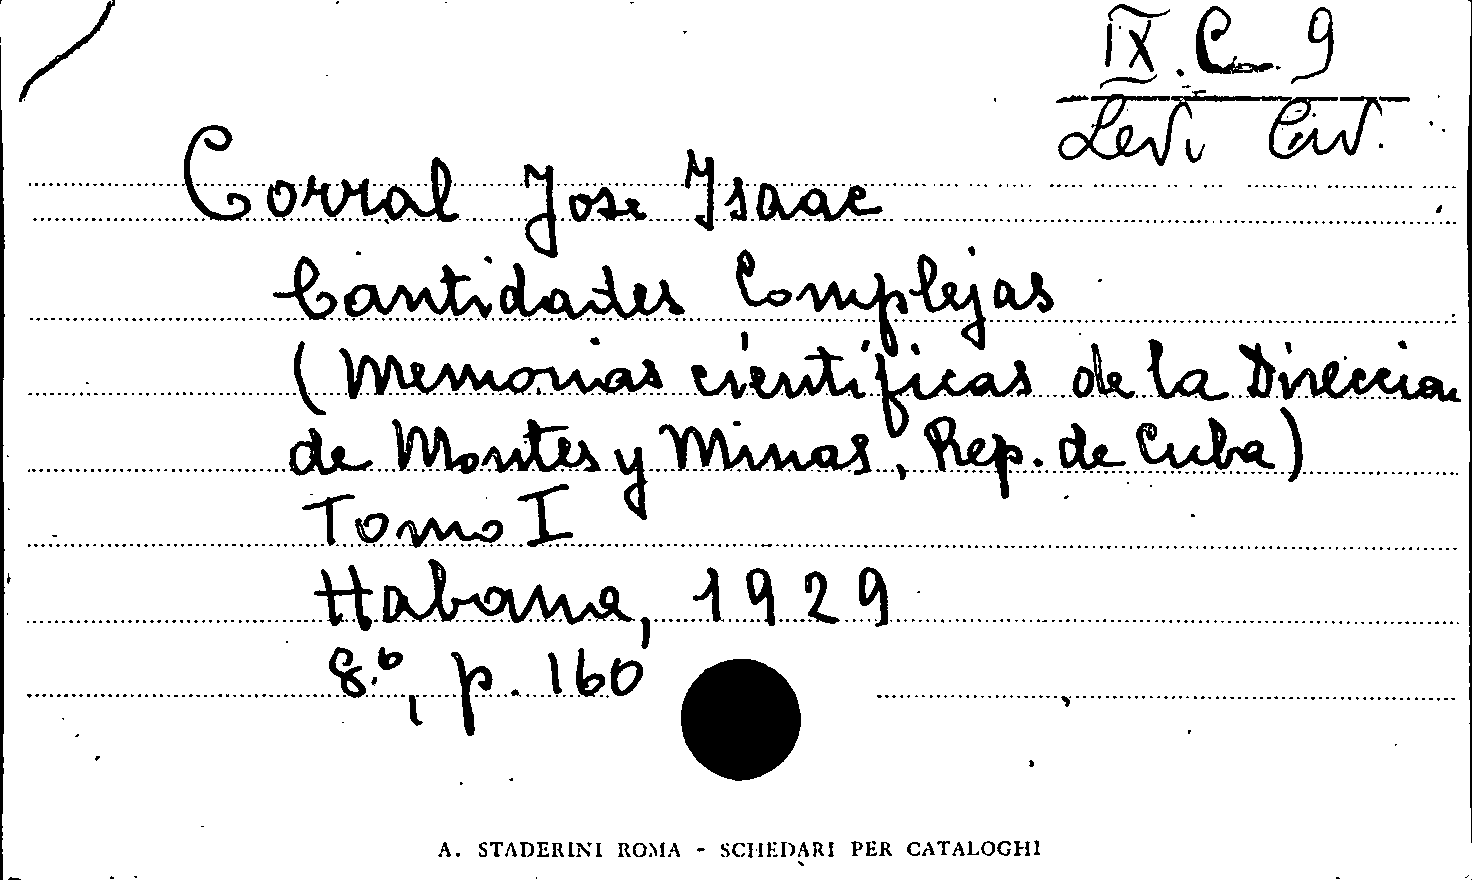 IX. C 9
Levi Civ.
Corral Jose Isaac
Cantidades Complejas
(Memorias científicas de la Direccion
de Montes y Minas, Rep. de Cuba)
Tomo I
Habana, 1929
8.º, p. 160
A. STADERINI ROMA - SCHEDARI PER CATALOGHI